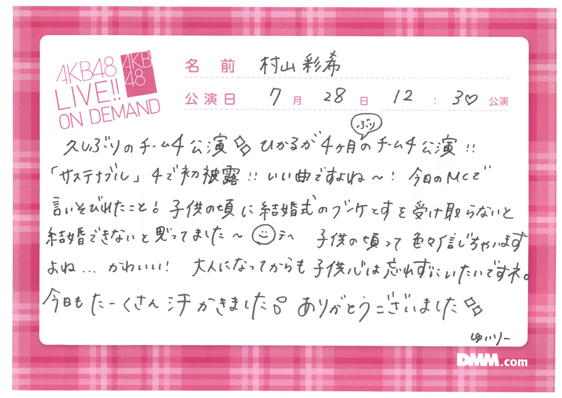 AKB48
LIVE!!
ON DEMAND
AKB
48
名前 村山彩希
公演日 7月 28日 12:30 公演
ぶり
久しぶりのチーム4公演 ひかるが4ヶ月のチーム4公演!!
「サステナブル」4で初披露!! いい曲ですよね〜! 今日のMCで
言いそびれたこと! 子供の頃に結婚式のブーケとすを受け取らないと
結婚できないと思ってました〜 テヘ 子供の頃って色々信じちゃいます
よね… かわいい! 大人になってからも子供心は忘れずにいたいですネ。
今日もたーくさん汗かきました ありがとうございました
ゆいりー
DMM.com